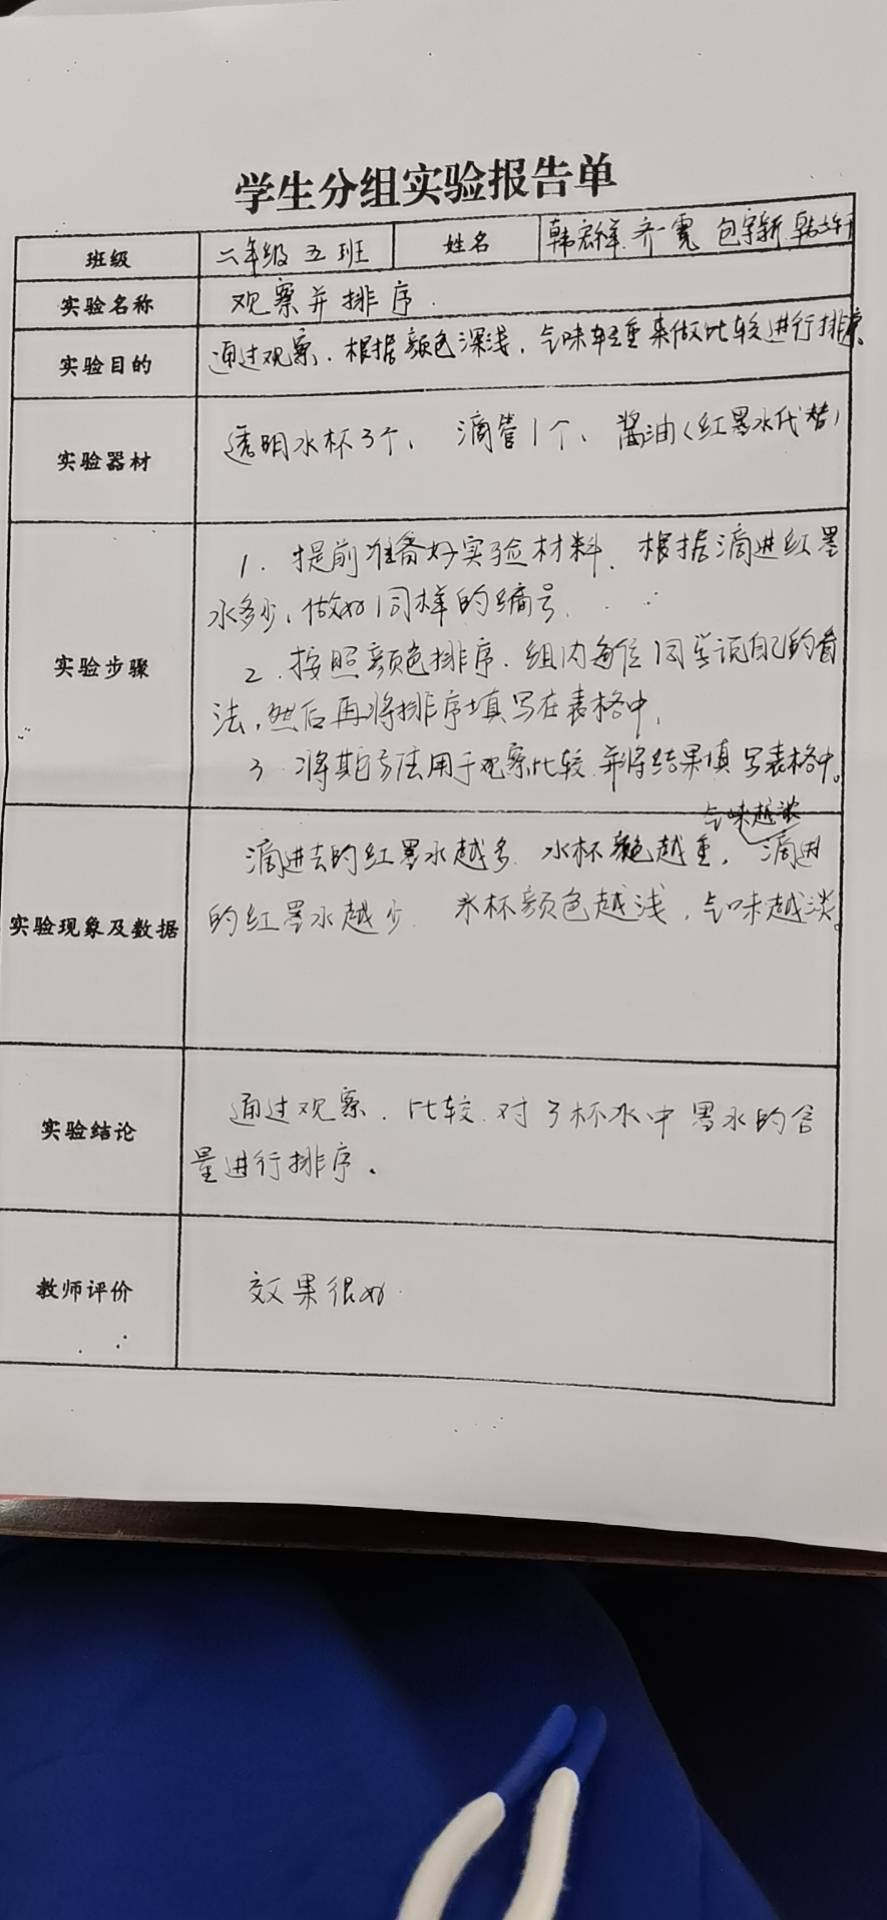 学生分组实验报告单
班级 二年级五班 姓名 齐霓 包宇新
实验名称 观察并排序.
实验目的 通过观察.根据颜色深浅,气味轻重来做比较进行排序
实验器材 透明水杯3个, 滴管1个、 酱油(红墨水代替)
1. 提前准备好实验材料. 根据滴进红墨
水多少,做好同样的编号.
实验步骤 2. 按照颜色排序.组内每位同学说自己的看
法,然后再将排序填写在表格中,
3. 将其方法用于观察比较 并将结果填写表格中。
气味越浓
滴进去的红墨水越多. 水杯颜色越重, 滴进
实验现象及数据 的红墨水越少. 水杯颜色越浅,气味越淡。
实验结论 通过观察.比较.对3杯水中墨水的含
量进行排序.
教师评价 效果很好.